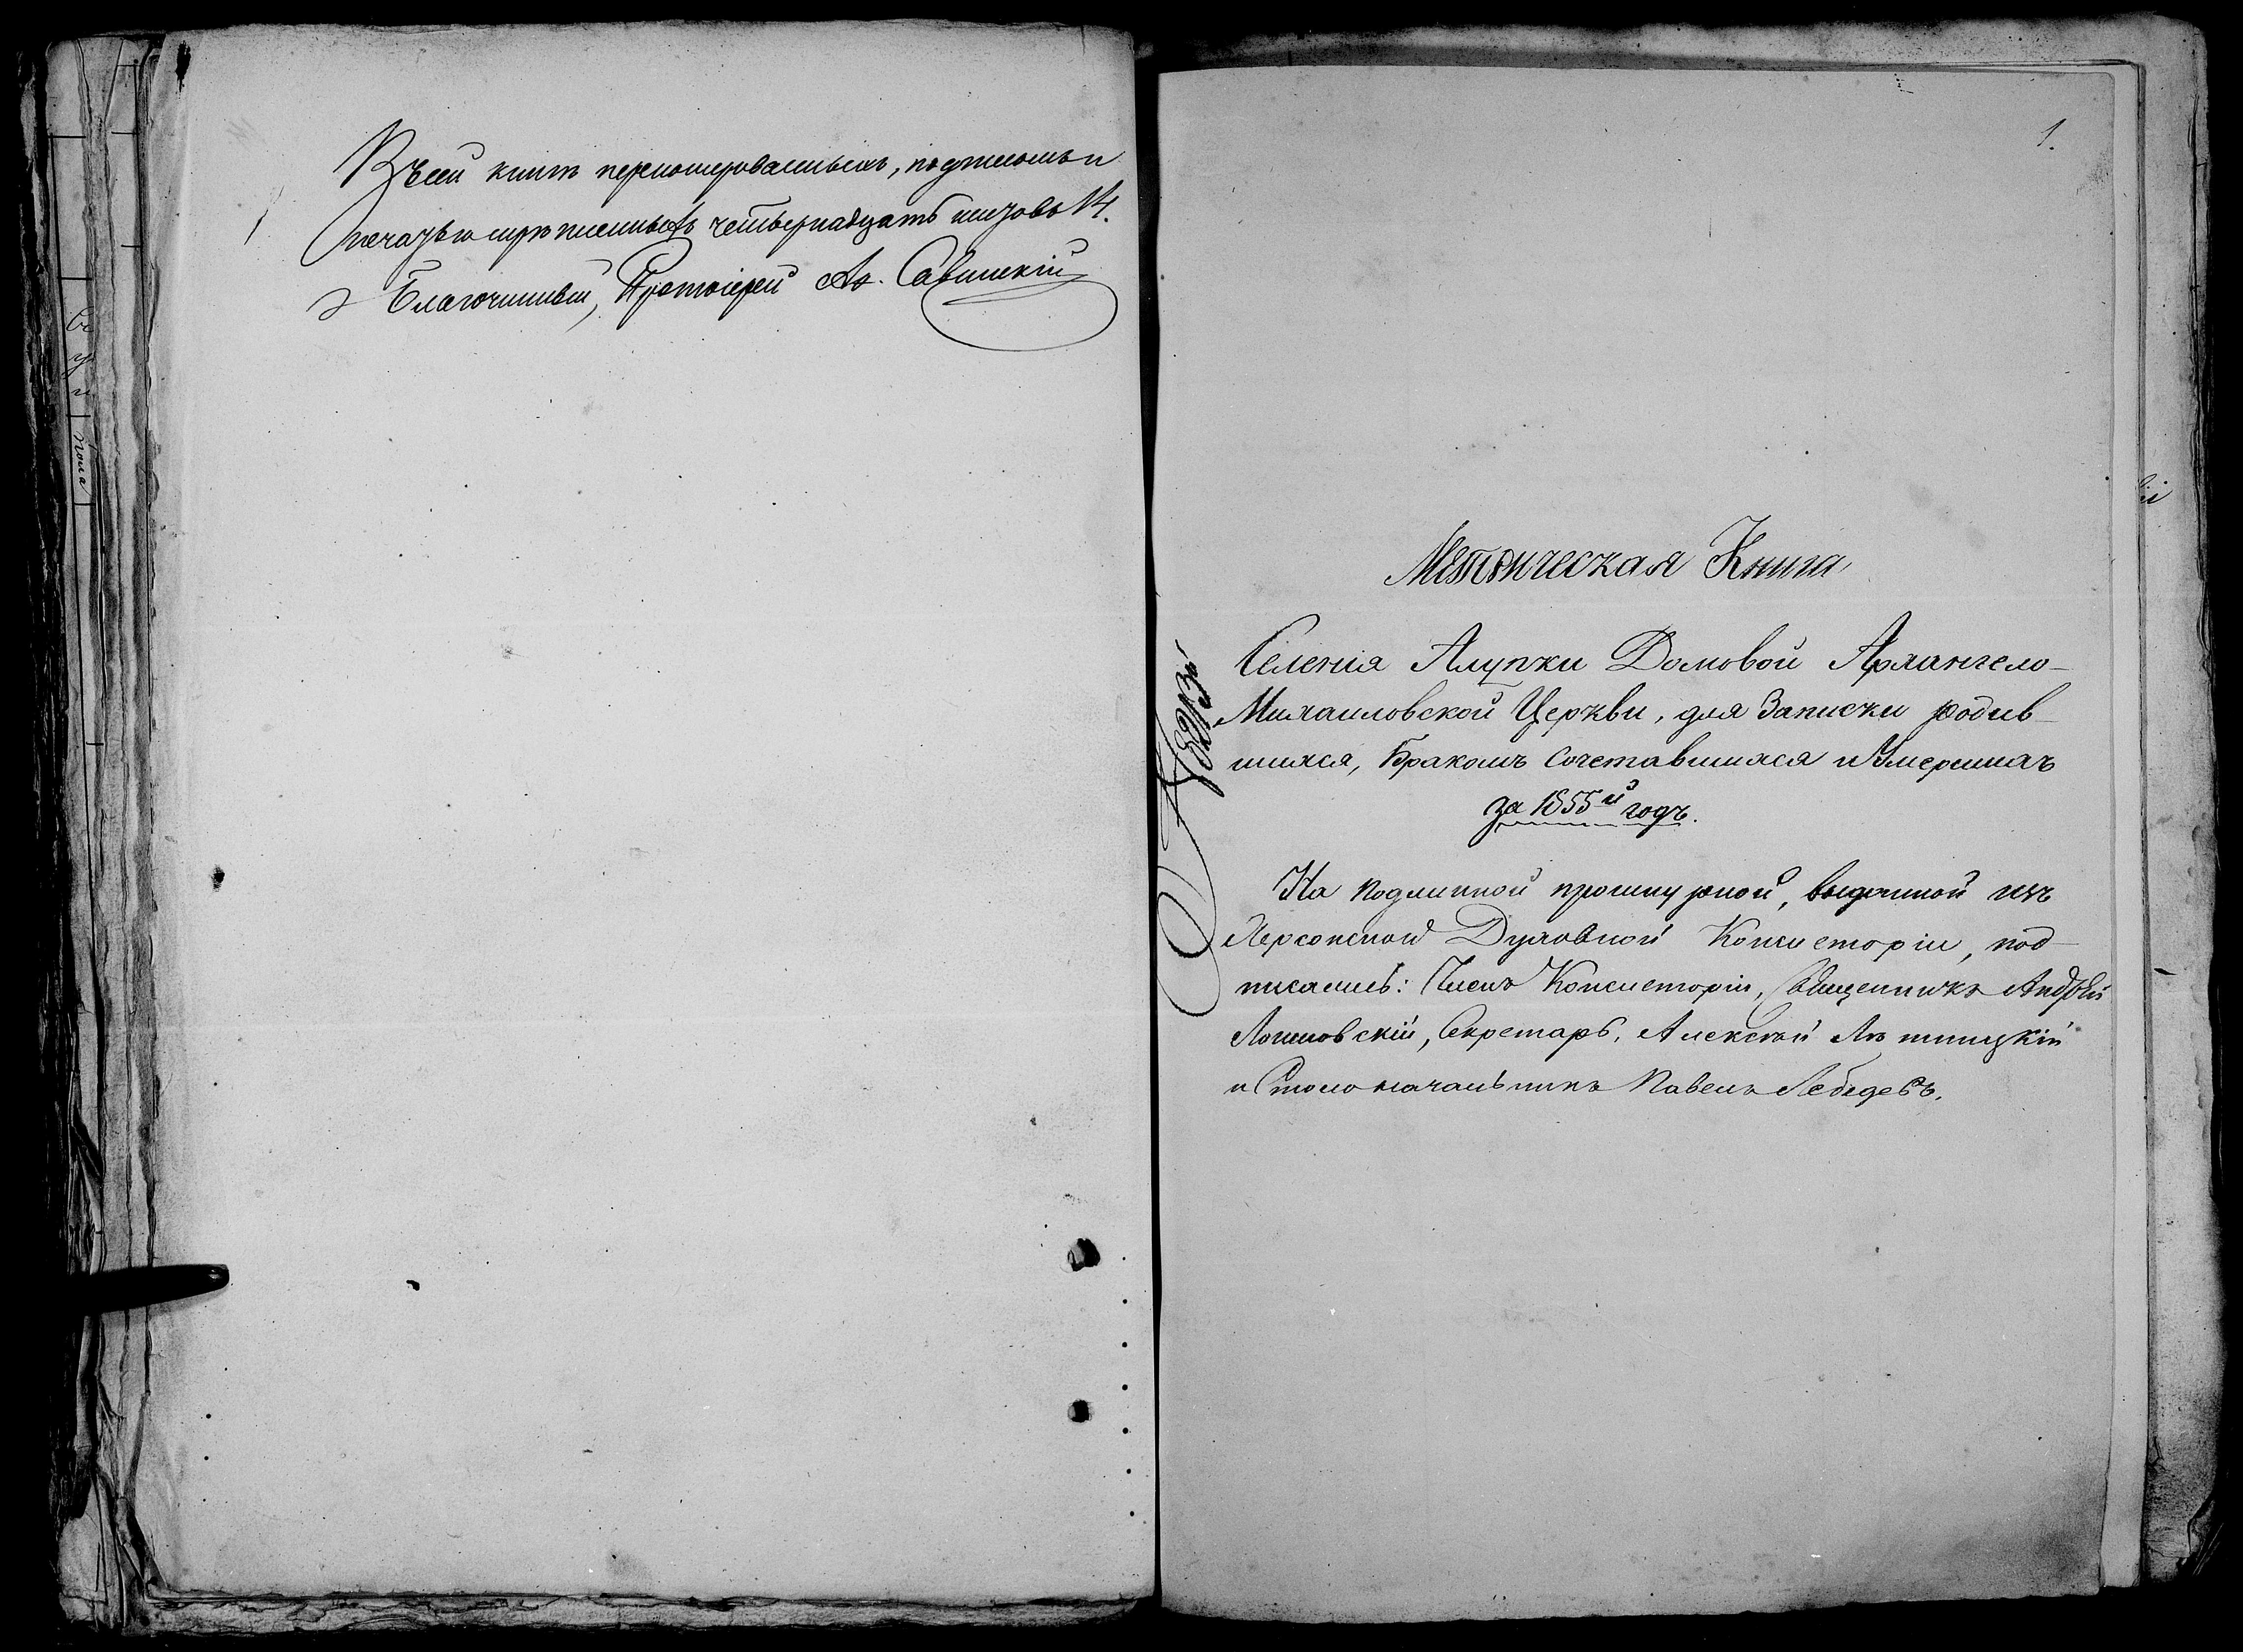 Въ сей книгѣ перенумерованныхъ, подписомъ и
печатью скрѣпленныхъ четырнадцать листовъ 14.
Благочинный, Протоіерей Ал. Савинскій
1.
Метрическая Книга
Селенія Алупки Домовой Архангело-
Михаиловской Церкви, для Записки родив-
шихся, Бракомъ Сочетавшихся и Умершихъ
за 1855й годъ.
На подлинной прошнурной, выданной изъ
Херсонской Духовной Консисторіи, под-
писались: Членъ Консисторіи, Священникъ Андрей
Логиновскій, Секретарь, Алексѣй
и Столоначальникъ Павелъ Лебедевъ.